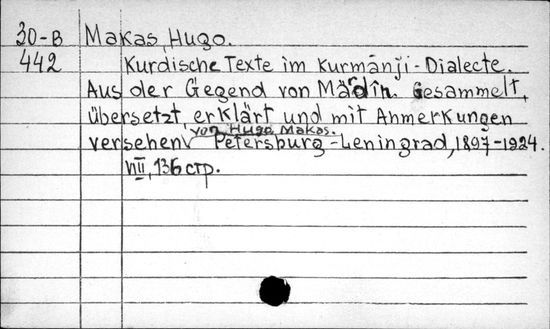 30-B Makas, Hugo.
442 Kurdische Texte im Kurmānji-Dialecte.
Aus der Gegend von Märdîn. Gesammelt,
übersetzt, erklärt und mit Anmerkungen
von Hugo Makas.
versehen Petersburg-Leningrad, 1897-1924.
VIII, 136 стр.